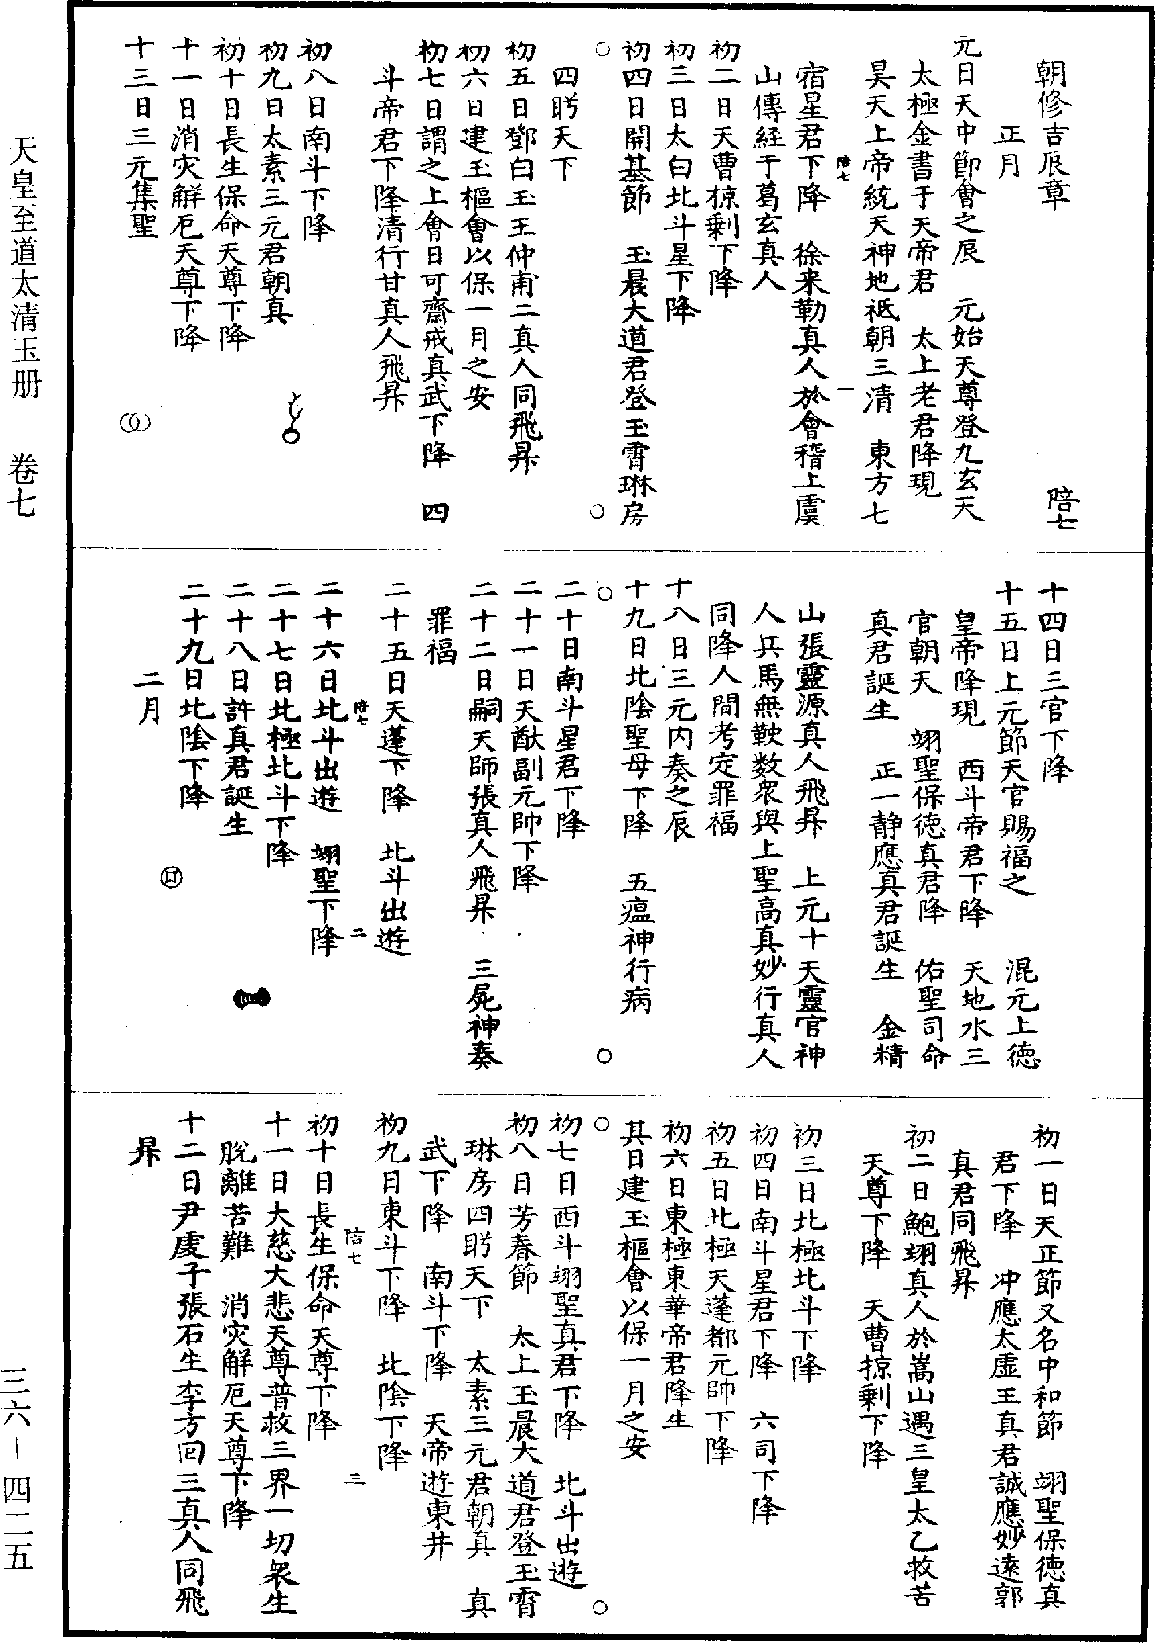 朝修吉辰章
陪七
正月
元日天中節會之辰　元始天尊登九玄天
太極金書于天帝君　太上老君降現
昊天上帝統天神地祗朝三清　東方七
陪七
一
宿星君下降　徐来勒真人於會稽上虞
山傳經于葛玄真人
初二日天曹掠剩下降
初三日太白北斗星下降
初四日開基節　玉晨大道君登玉霄琳房
四眄天下
初五日鄧白玉王仲甫二真人同飛昇
初六日建玉樞會以保一月之安
初七日謂之上會日可齋戒真武下降　四
斗帝君下降清行甘真人飛昇
初八日南斗下降
初九日太素三元君朝真
初十日長生保命天尊下降
十一日消灾解厄天尊下降
十三日三元集聖
十四日三官下降
十五日上元節天官賜福之　混元上徳
皇帝降現　西斗帝君下降　天地水三
官朝天　翊聖保徳真君降　佑聖司命
真君誕生　正一静應真君誕生　金精
山張靈源真人飛昇　上元十天靈官神
人兵馬無鞅数衆與上聖高真妙行真人
同降人間考定罪福
十八日三元内奏之辰
十九日北陰聖母下降　五瘟神行病
二十日南斗星君下降
二十一日天猷副元帥下降
二十二日嗣天師張真人飛昇　三屍神奏
罪福
二十五日天蓬下降　北斗出遊
陪七
二
二十六日北斗出遊　翊聖下降
二十七日北極北斗下降
二十八日許真君誕生
二十九日北陰下降
二月
初一日天正節又名中和節　翊聖保徳真
君下降　冲應太虚王真君誠應妙遠郭
真君同飛昇
初二日鮑翊真人於嵩山遇三皇太乙救苦
天尊下降　天曹掠剩下降
初三日北極北斗下降
初四日南斗星君下降　六司下降
初五日北極天蓬都元帥下降
初六日東極東華帝君降生
其日建玉樞會以保一月之安
初七日西斗翊聖真君下降　北斗出遊
初八日芳春節　太上玉晨大道君登玉霄
琳房四眄天下　太素三元君朝真　真
武下降　南斗下降　天帝遊東井
初九日東斗下降　北陰下降
陪七
三
初十日長生保命天尊下降
十一日大慈大悲天尊普救三界一切衆生
脱離苦難　消灾解厄天尊下降
十二日尹虔子張石生李方回三真人同飛
昇
天皇至道太清玉册　卷七
三六－四二五